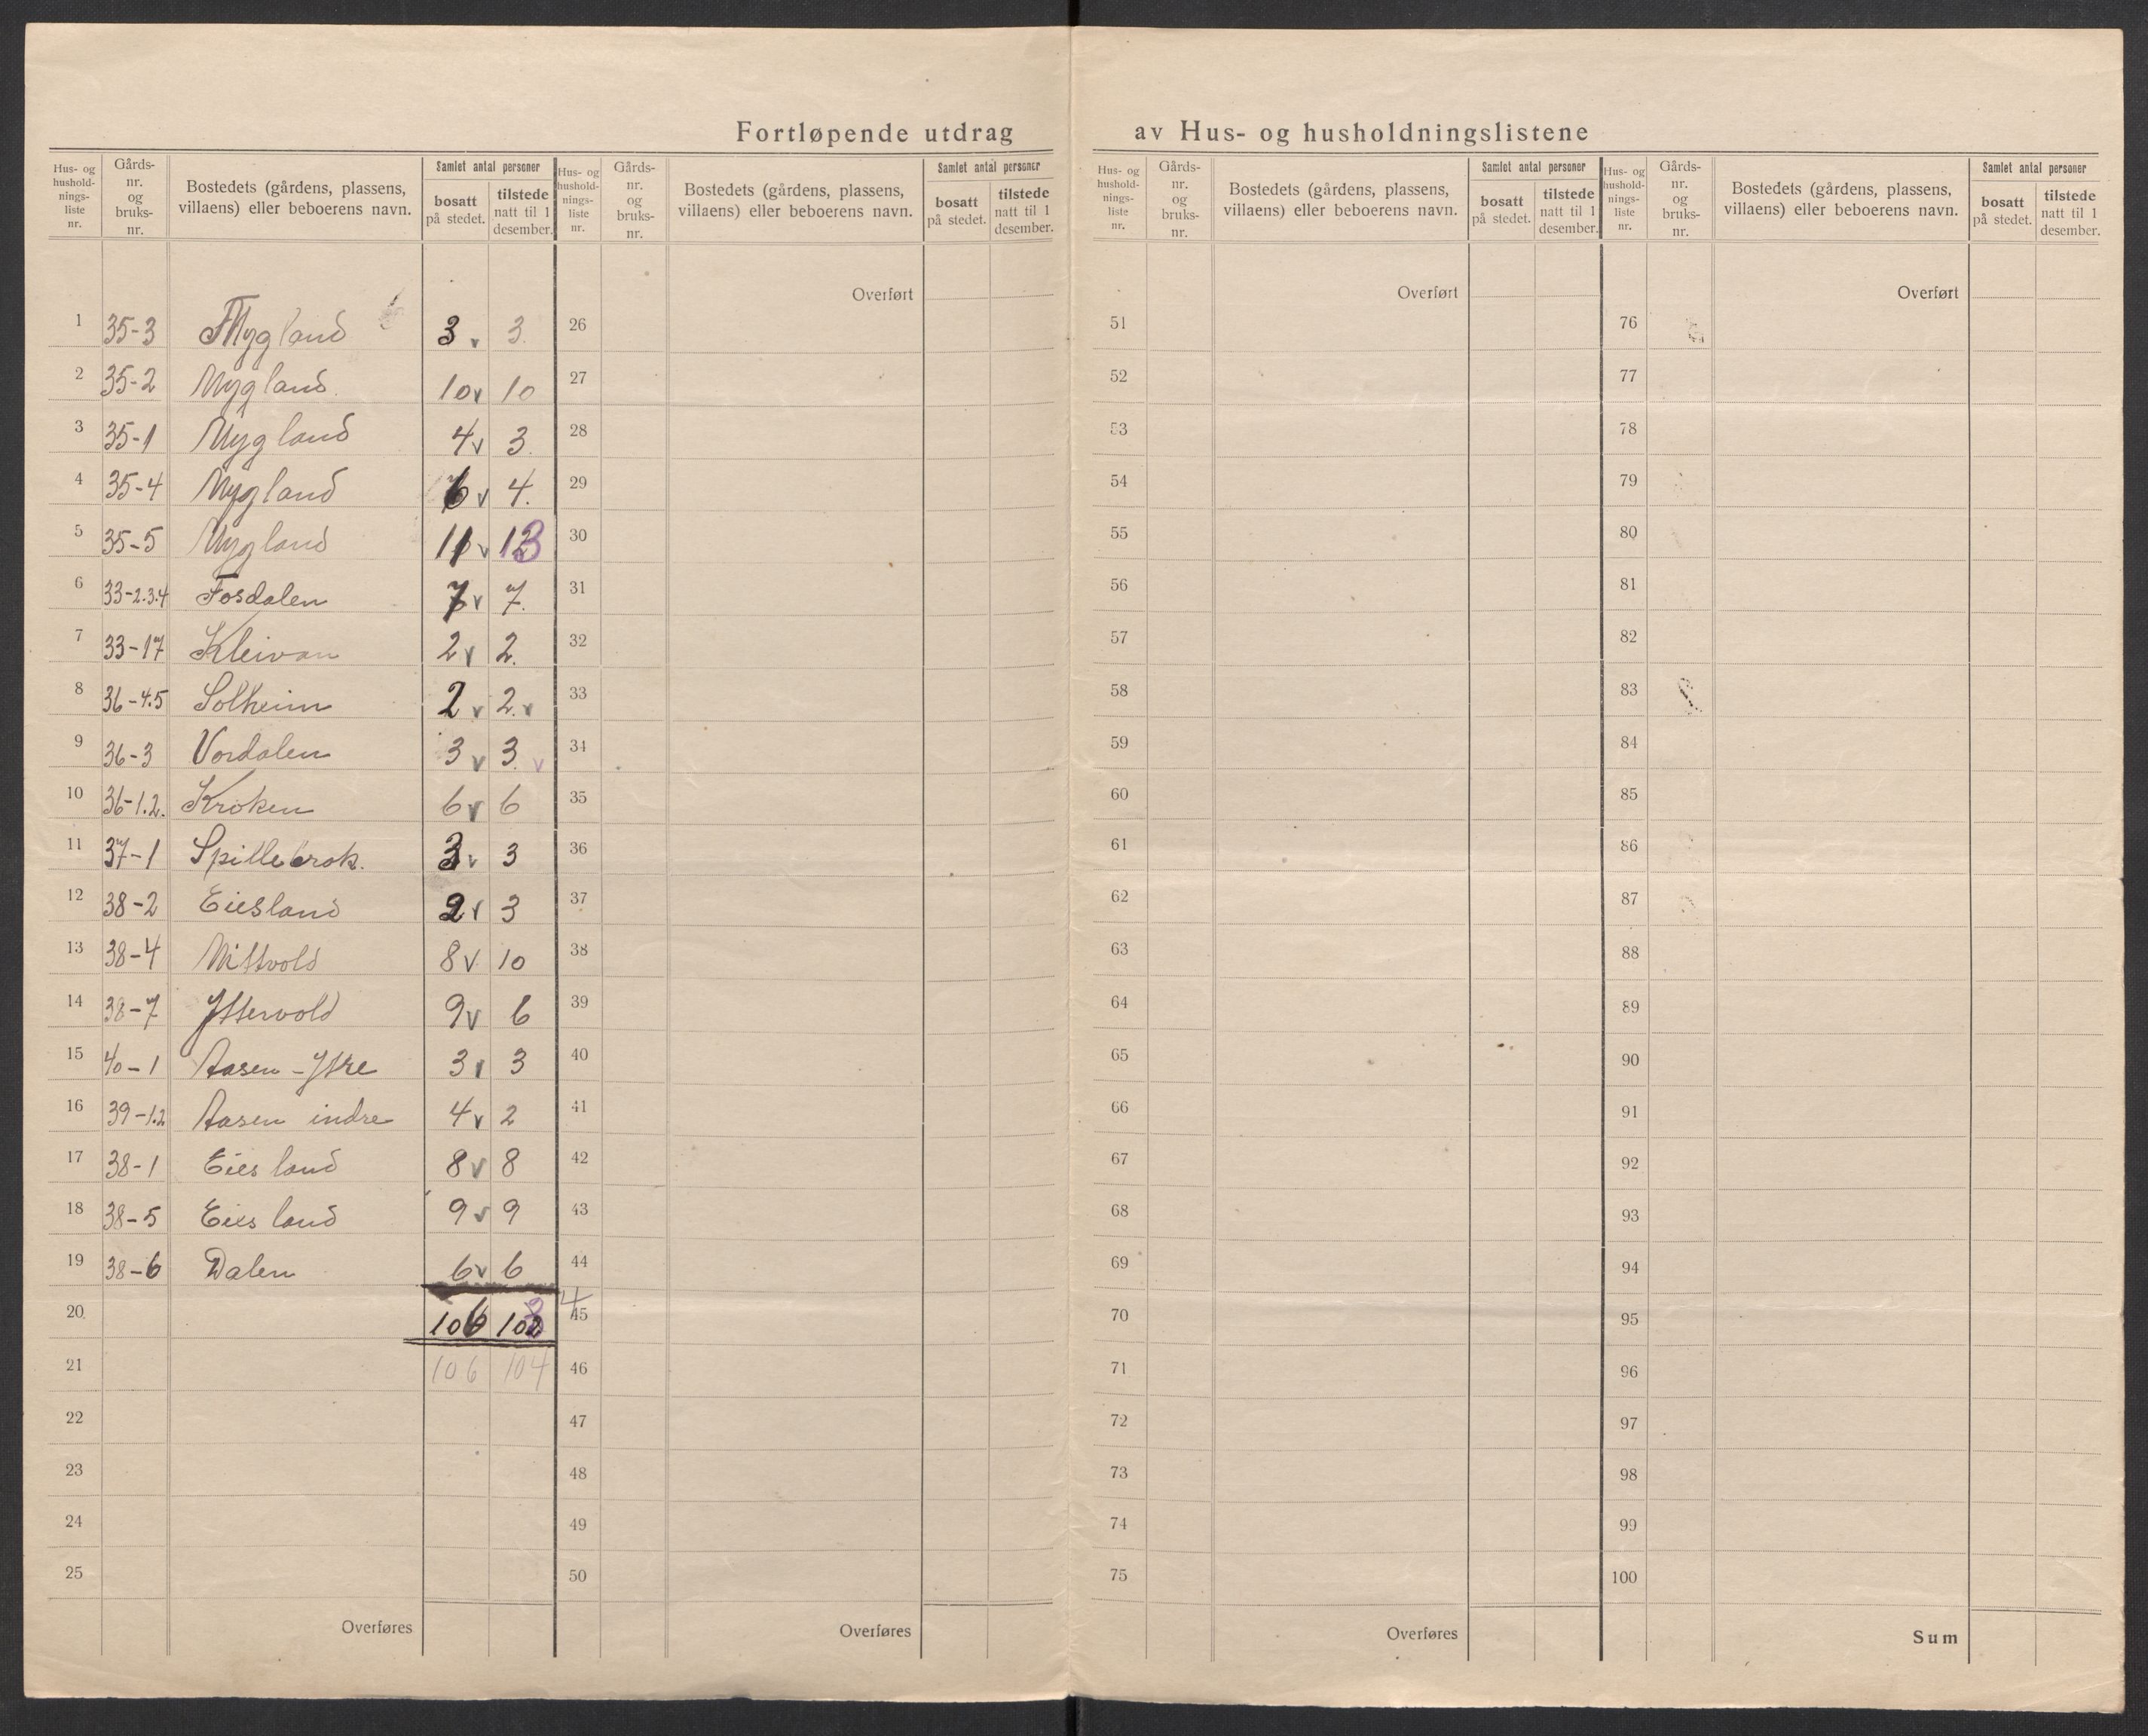 Fortløpende utdrag av Hus- og husholdningslistene
Hus- og hushold- nings- liste nr. | Gårds- nr. og bruks- nr. | Bostedets (gårdens, plassens, villaens) eller beboerens navn. | Samlet antal personer | bosatt på stedet. | tilstede natt til 1 desember.
Hus- og hushold- nings- liste nr. | Gårds- nr. og bruks- nr. | Bostedets (gårdens, plassens, villaens) eller beboerens navn. | Samlet antal personer | bosatt på stedet. | tilstede natt til 1 desember.
Hus- og hushold- nings- liste nr. | Gårds- nr. og bruks- nr. | Bostedets (gårdens, plassens, villaens) eller beboerens navn. | Samlet antal personer | bosatt på stedet. | tilstede natt til 1 desember.
Hus- og hushold- nings- liste nr. | Gårds- nr. og bruks- nr. | Bostedets (gårdens, plassens, villaens) eller beboerens navn. | Samlet antal personer | bosatt på stedet. | tilstede natt til 1 desember.
1 35-3 Mygland 3 v 3.
2 35-2 Mygland. 10 v 10
3 35-1 Mygland 4 v 3.
4 35-4 Mygland 6 v 4.
5 35-5 Mygland 11 v 13
6 33-2.3.4 Fosdalen 7 v 7.
7 33-17 Kleivan 2 v 2.
8 36-4.5 Solheim 2 v 2. v
9 36-3 Vordalen 3 v 3. v
10 36-1.2. Kroken 6 v 6
11 37-1 Spillebrok. 3 v 3
12 38-2 Eiesland 2 v 3
13 38-4 Mittvold 8 v 10
14 38-7 Yttervold 9 v 6
15 40-1 Aasen - Ytre 3 v 3
16 39-1.2 Aasen indre 4 v 2
17 38-1 Eiesland 8 v 8
18 38-5 Eiesland 9 v 9
19 38-6 Dalen 6 v 6
20 106 103 4
21 106 104
22
23
24
25
Overføres
Overført
26
27
28
29
30
31
32
33
34
35
36
37
38
39
40
41
42
43
44
45
46
47
48
49
50
Overføres
Overført
51
52
53
54
55
56
57
58
59
60
61
62
63
64
65
66
67
68
69
70
71
72
73
74
75
Overføres
Overført
76
77
78
79
80
81
82
83
84
85
86
87
88
89
90
91
92
93
94
95
96
97
98
99
100
Sum